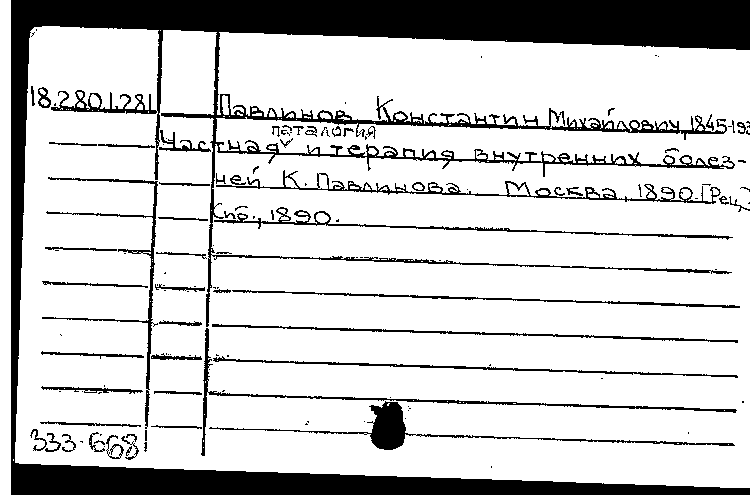 18.280.1.281 Павлинов Константин Михайлович, 1845-193
паталогия
Частная и терапия внутренних болез-
ней К. Павлинова. Москва, 1890. [Рец.]
Спб., 1890.
333-668